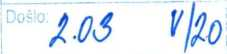 Došlo: 2.03 V/20